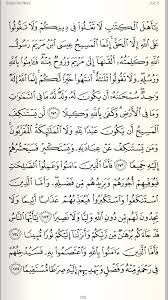 Juz 6
يَٰٓأَهۡلَ ٱلۡكِتَٰبِ لَا تَغۡلُواْ فِي دِينِكُمۡ وَلَا تَقُولُواْ
عَلَى ٱللَّهِ إِلَّا ٱلۡحَقَّۚ إِنَّمَا ٱلۡمَسِيحُ عِيسَى ٱبۡنُ مَرۡيَمَ رَسُولُ
ٱللَّهِ وَكَلِمَتُهُۥٓ أَلۡقَىٰهَآ إِلَىٰ مَرۡيَمَ وَرُوحٞ مِّنۡهُۖ فَـَٔامِنُواْ بِٱللَّهِ
وَرُسُلِهِۦۖ وَلَا تَقُولُواْ ثَلَٰثَةٌۚ ٱنتَهُواْ خَيۡرٗا لَّكُمۡۚ إِنَّمَا ٱللَّهُ إِلَٰهٞ
وَٰحِدٞۖ سُبۡحَٰنَهُۥٓ أَن يَكُونَ لَهُۥ وَلَدٞۘ لَّهُۥ مَا فِي ٱلسَّمَٰوَٰتِ
وَمَا فِي ٱلۡأَرۡضِۗ وَكَفَىٰ بِٱللَّهِ وَكِيلٗا ١٧١ لَّن يَسۡتَنكِفَ
ٱلۡمَسِيحُ أَن يَكُونَ عَبۡدٗا لِّلَّهِ وَلَا ٱلۡمَلَٰٓئِكَةُ ٱلۡمُقَرَّبُونَۚ
وَمَن يَسۡتَنكِفۡ عَنۡ عِبَادَتِهِۦ وَيَسۡتَكۡبِرۡ فَسَيَحۡشُرُهُمۡ
إِلَيۡهِ جَمِيعٗا ١٧٢ فَأَمَّا ٱلَّذِينَ ءَامَنُواْ وَعَمِلُواْ ٱلصَّٰلِحَٰتِ
فَيُوَفِّيهِمۡ أُجُورَهُمۡ وَيَزِيدُهُم مِّن فَضۡلِهِۦۖ وَأَمَّا ٱلَّذِينَ
ٱسۡتَنكَفُواْ وَٱسۡتَكۡبَرُواْ فَيُعَذِّبُهُمۡ عَذَابًا أَلِيمٗا وَلَا
يَجِدُونَ لَهُم مِّن دُونِ ٱللَّهِ وَلِيّٗا وَلَا نَصِيرٗا ١٧٣ يَٰٓأَيُّهَا ٱلنَّاسُ
قَدۡ جَآءَكُم بُرۡهَٰنٞ مِّن رَّبِّكُمۡ وَأَنزَلۡنَآ إِلَيۡكُمۡ نُورٗا مُّبِينٗا ١٧٤
فَأَمَّا ٱلَّذِينَ ءَامَنُواْ بِٱللَّهِ وَٱعۡتَصَمُواْ بِهِۦ فَسَيُدۡخِلُهُمۡ
فِي رَحۡمَةٖ مِّنۡهُ وَفَضۡلٖ وَيَهۡدِيهِمۡ إِلَيۡهِ صِرَٰطٗا مُّسۡتَقِيمٗا ١٧٥
105